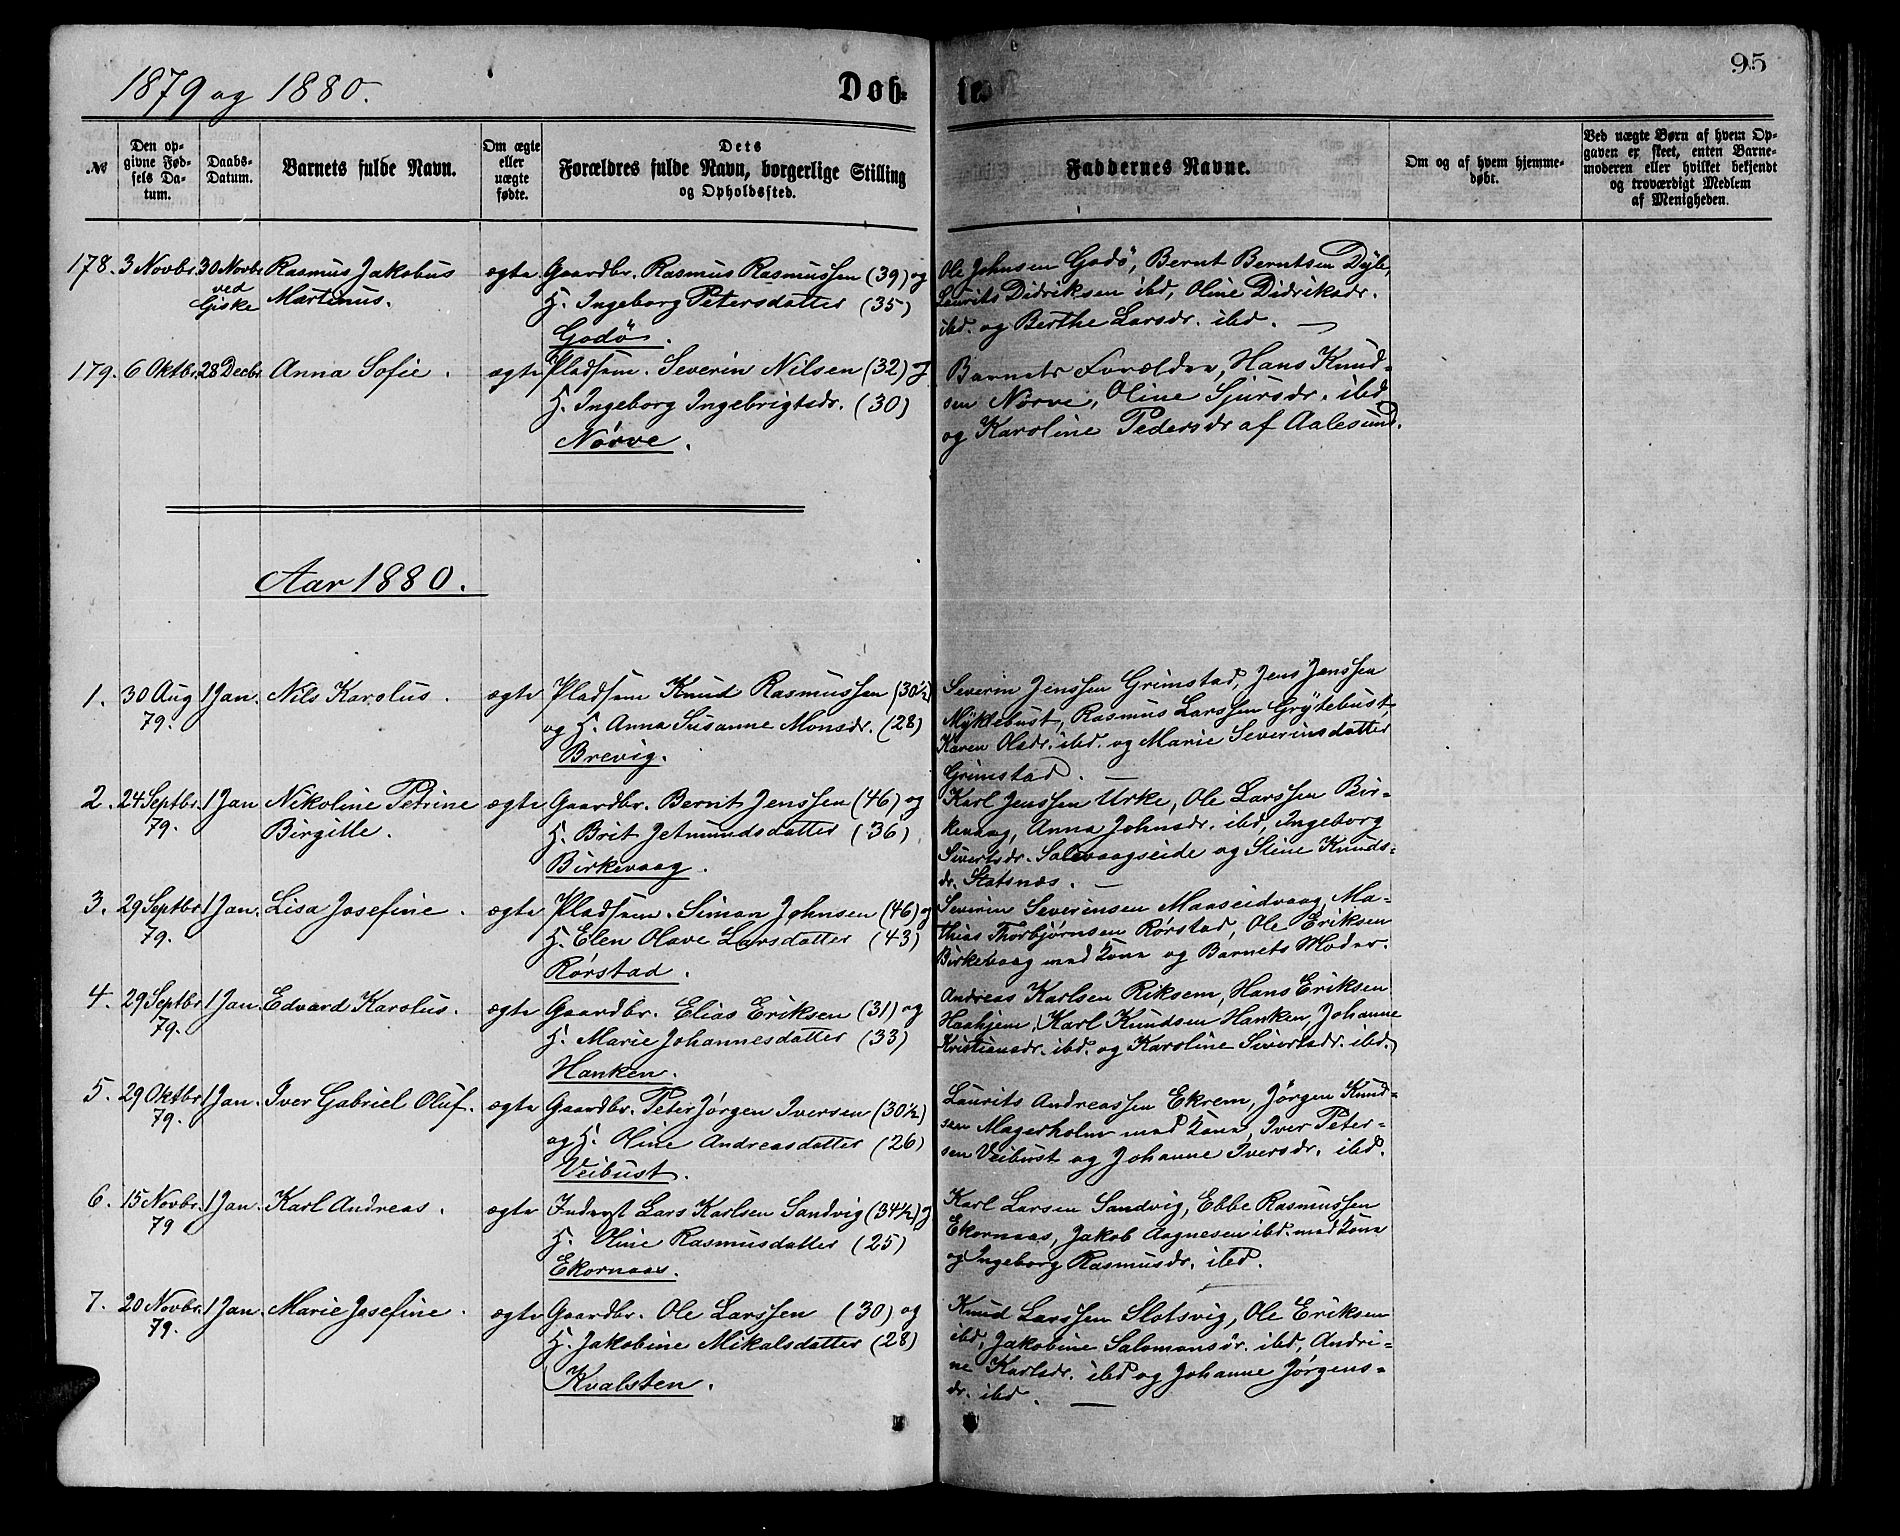 1879 og 1880.
Døb-
te.
95
№
Den op-
givne Fød-
sels Da-
tum.
Daabs-
Datum.
Barnets fulde Navn.
Om ægte
eller
uægte
fødte.
Dets
Forældres fulde Navn, borgerlige Stilling
og Opholdssted.
Faddernes Navne.
Om og af hvem hjemme-
døbt.
Ved uægte Børn af hvem Op-
gaven er skeet, enten Barne-
moderen eller hvilket bekjendt
og troværdigt Medlem
af Menigheden.
178. 3 Novbr. 30 Novbr Rasmus Jakobus ægte Gaardbr. Rasmus Rasmussen (39) og
ved
Giske Martinus. H. Ingeborg Petersdatter (35)
Godø.
Ole Johnsen Godø, Bernt Berntsen Dyb,
Laurits Didriksen ibd, Oline Didriksdr.
ibd. og Berthe Larsdr. ibd. —
179. 6 Oktbr. 28 Decbr. Anna Sofie. ægte Pladsm. Severin Nilsen (32) og
H. Ingeborg Ingebrigtsdr. (30)
Nørve.
Barnets Forældre, Hans Knud-
sen Nørve, Oline Sjursdr. ibd
og Karoline Pedersdr af Aalesund.
Aar 1880.
1. 30 Aug 1 Jan. Nils Karolus. ægte Pladsm Knud Rasmussen (30½)
79. og H. Anna Susanne Monsdr. (28)
Brevig.
Severin Jenssen Grimstad, Jens Jenssen
Myklebust, Rasmus Larssen Grytebust,
Karen Olsdr. ibd. og Marie Severinsdatter
Grimstad. —
2. 24 Septbr. 1 Jan Nikoline Petrine ægte Gaardbr. Bernt Jenssen (46) og
79. Birgitte. H. Brit Jetmundsdatter (36)
Birkevaag.
Karl Jenssen Urke, Ole Larssen Bir-
kevaag, Anna Johnsdr. ibd, Ingeborg
Sivertsdr. Solevaagseide og Stine Knuds-
dr. Slatsnæs. —
3. 29 Septbr 1 Jan. Lisa Josefine. ægte Pladsm. Simon Johnsen (46) og
79. H. Elen Olave Larsdatter (43)
Rørstad.
Severin Severinsen Maaseidvaag, Ma-
thias Thorbjørnsen Rørstad, Ole Eriksen
Birkevaag med Kone og Barnets Moder.
4. 29 Septbr 1 Jan. Edvard Karolus. ægte Gaardbr. Elias Eriksen (31) og
79. H. Marie Johannesdatter (33)
Hanken.
Andreas Karlsen Riksem, Hans Eriksen
Haahjem, Karl Knudsen Hanken, Johanne
Kristiansdr. ibd. og Karoline Sivertsdr. ibd.
5. 29 Oktbr 1 Jan. Iver Gabriel Oluf. ægte Gaardbr. Peter Jørgen Iversen (30½)
79. og H. Oline Andreasdatter (26)
Veibust.
Laurits Andreassen Ekrem, Jørgen Knud-
sen Magerholm med Kone, Iver Peter-
sen Veibust og Johanne Iversdr. ibd.
6. 15 Novbr. 1 Jan. Karl Andreas. ægte Inderst Lars Karlsen Sandvig (34½) og
79 H. Oline Rasmusdatter (25)
Ekornaas.
Karl Larsen Sandvig, Ebbe Rasmussen
Ekornaas, Jakob Aagnesen ibd. med Kone
og Ingeborg Rasmusdr. ibd.
7. 20 Novbr. 1 Jan. Marie Josefine. ægte Gaardbr. Ole Larssen (30) og
79. H. Jakobine Mikalsdatter (28)
Kvalsten.
Knud Larssen Slotsvig, Ole Eriksen
ibd, Jakobine Salomonsdr. ibd, Andri-
ne Karlsdr. ibd og Johanne Jørgens-
dr. ibd. —